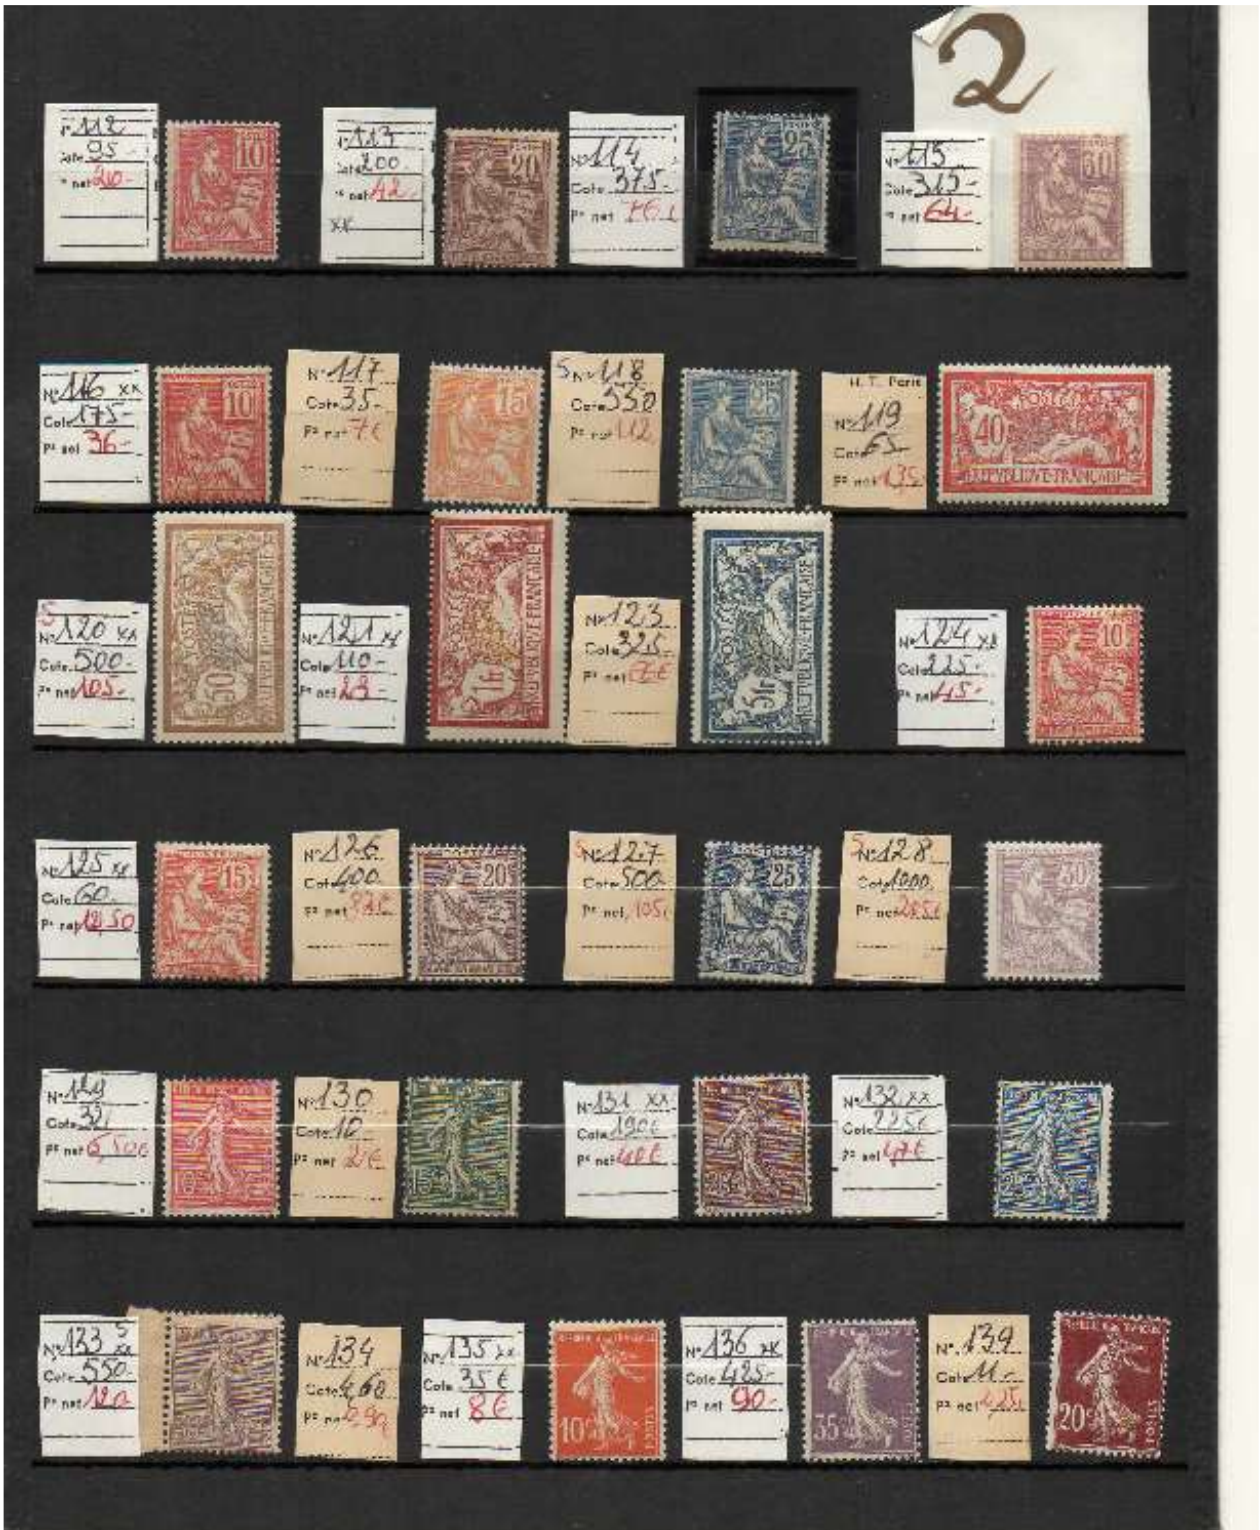 2
N° 112
Cote 95-
Px net 20-
10
N° 113
Cote 200-
Px net 42-
xx
20
N° 114
Cote 375-
Px net
25
N° 115
Cote 315-
Px net 64-
N° 116 xx
Cote 175-
Px net 36-
10
N° 117
Cote 35-
Px net 7€
15
S N° 118
Cote 550
Px net 112
25
H. T. Paris
N° 119
Cote 65-
Px net 13,50
40
POSTES
REPUBLIQUE FRANÇAISE
S
N° 120 xx
Cote 500-
Px net 105-
POSTES
50c
REPUBLIQUE FRANÇAISE
N° 121 xx
Cote 110-
Px net 23-
POSTES
1f
REPUBLIQUE FRANÇAISE
N° 123
Cote 325-
Px net
POSTES
5f
REPUBLIQUE FRANÇAISE
N° 124 xx
Cote 225-
Px net 45-
10
N° 125 xx
Cote 60-
Px net 12,50
15c
N° 126
Cote 400-
Px net
20c
S N° 127
Cote 500-
Px net 105€
25c
S N° 128
Cote 1000-
Px net
30c
N° 129
Cote 32,
Px net 6,50€
N° 130
Cote 10
Px net 2€
N° 131 xx
Cote 190€
Px net 40€
N° 132 xx
Cote 225€
Px net 47€
N° 133 S xx
Cote 550-
Px net 120-
N° 134
Cote 4,60
Px net 0,90
N° 135 xx
Cote 35€
Px net 8€
10c
POSTES
N° 136 xx
Cote 425-
Px net 90-
35c
POSTES
N° 139
Cote 11-
Px net 2,25€
20c
POSTES